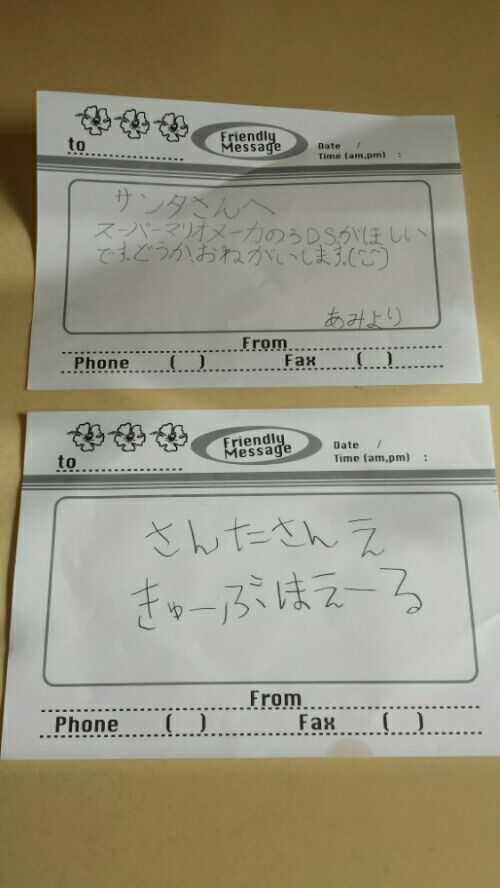 to
Friendly
Message
Date /
Time (am,pm) :
サンタさんへ
スーパーマリオメーカの3DSがほしい
です。どうか、おねがいします。(^-^)
あみより
From
Phone ( ) Fax ( )
to
Friendly
Message
Date /
Time (am,pm) :
さんたさんえ
きゅーぶほえーる
From
Phone ( ) Fax ( )